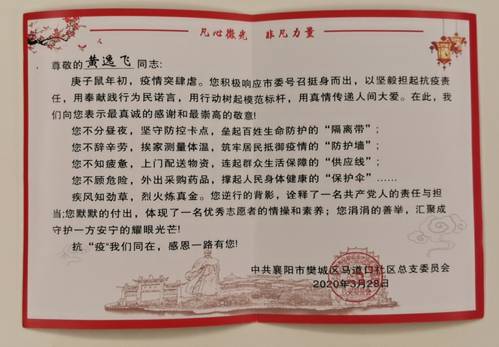 凡心微光 非凡力量
尊敬的黄逸飞同志：
庚子鼠年初，疫情突肆虐。您积极响应市委号召挺身而出，以坚毅担起抗疫责
任，用奉献践行为民诺言，用行动树起模范标杆，用真情传递人间大爱。在此，我
们向您表示最真诚的感谢和最崇高的敬意！
您不分昼夜，坚守防控卡点，垒起百姓生命防护的“隔离带”；
您不辞辛劳，挨家测量体温，筑牢居民抵御疫情的“防护墙”；
您不知疲惫，上门配送物资，连起群众生活保障的“供应线”；
您不顾危险，外出采购药品，撑起人民身体健康的“保护伞”……
疾风知劲草，烈火炼真金。您逆行的背影，诠释了一名共产党人的责任与担
当；您默默的付出，体现了一名优秀志愿者的情操和素养；您涓涓的善举，汇聚成
守护一方安宁的耀眼光芒！
抗“疫”我们同在，感恩一路有您！
中共襄阳市樊城区马道口社区总支委员会
2020年3月28日